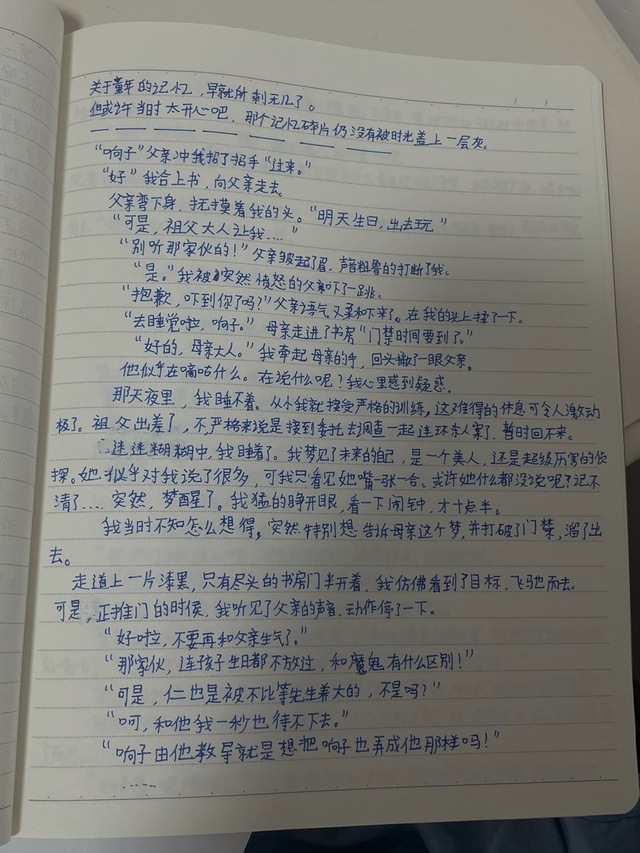 关于童年的记忆，早就所剩无几了。
但或许当时太开心吧，那个记忆碎片仍没有被时光盖上一层灰。
“响子”父亲冲我招了招手“过来。”
“好”我合上书，向父亲走去。
父亲弯下身，抚摸着我的头。“明天生日，出去玩。”
“可是，祖父大人让我……”
“别听那家伙的！”父亲皱起了眉，声音粗鲁的打断了我。
“是。”我被突然愤怒的父亲吓了一跳。
“抱歉，吓到你了吗？”父亲语气又柔和下来了。在我的头上揉了一下。
“去睡觉啦，响子。”母亲走进了书房“门禁时间要到了。”
“好的，母亲大人。”我牵起母亲的手，回头瞅了一眼父亲。
他似乎在嘀咕什么。在说什么呢？我心里感到疑惑。
那天夜里，我睡不着。从小我就接受严格的训练，这难得的休息可令人激动
极了。祖父出差了，不，严格来说是接到委托去调查一起连环杀人案了，暂时回不来。
迷迷糊糊中，我睡着了。我梦见了未来的自己，是一个美人，还是超级厉害的侦
探。她似乎对我说了很多，可我只看见她嘴一张一合。或许她什么都没说呢？记不
清了……突然，梦醒了。我猛的睁开眼，看一下闹钟，才十点半。
我当时不知怎么想得，突然特别想告诉母亲这个梦，并打破了门禁，溜了出
去。
走道上一片漆黑，只有尽头的书房门半开着，我仿佛看到了目标，飞驰而去。
可是，正推门的时候，我听见了父亲的声音，动作停了一下。
“好啦，不要再和父亲生气了。”
“那家伙，连孩子生日都不放过，和魔鬼有什么区别！”
“可是，仁也是被不比等先生养大的，不是吗？”
“呵，和他我一秒也待不下去。”
“响子由他教导就是想把响子也弄成他那样吗！”
……